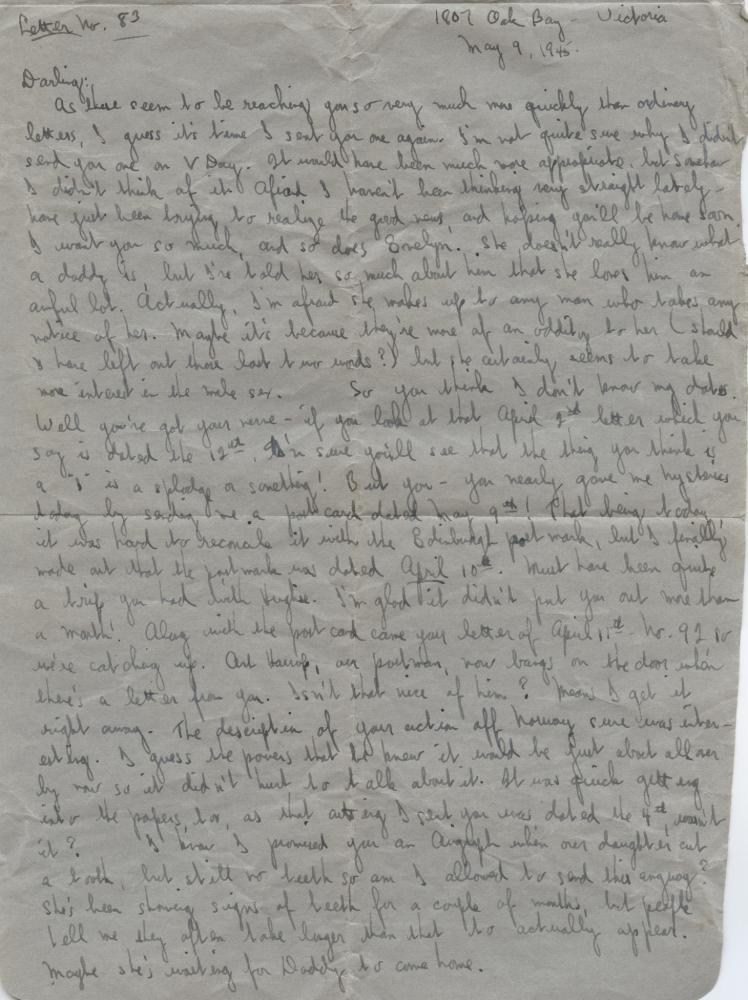 Letter No. 83
1807 Oak Bay - Victoria
May 9, 1945.
Darling:
As these seem to be reaching you so very much more quickly than ordinary
letters, I guess it's time I sent you one again. I'm not quite sure why I didn't
send you one on V Day. It would have been much more appropriate, but somehow
I didn't think of it. Afraid I haven't been thinking very straight lately -
have just been trying to realize the good news, and hoping you'll be home soon.
I want you so much, and so does Evelyn. She doesn't really know what
a daddy is, but I've told her so much about him that she loves him an
awful lot. Actually, I'm afraid she makes up to any man who takes any
notice of her. Maybe it's because they're more of an oddity to her (should
I have left out those last two words?) but she certainly seems to take
more interest in the male sex. So you think I don't know my dates.
Well you've got your nerve - if you look at that April 2nd letter which you
say is dated the 12th, I'm sure you'll see that the thing you think is
a "1" is a splodge or something! But you - you nearly gave me hysterics
today by sending me a post card dated May 9th! That being today
it was hard to reconcile it with the Edinburgh post mark, but I finally
made out that the postmark was dated April 10th. Must have been quite
a trip you had with Hughie. I'm glad it didn't put you out more than
a month! Along with the post card came your letter of April 11th - No. 92 so
we're catching up. Art Harrop, our postman, now bangs on the door when
there's a letter from you. Isn't that nice of him? Means I get it
right away. The description of your action off Norway sure was inter-
esting. I guess the powers that be knew it would be just about all over
by now so it didn't hurt to talk about it. It was quick getting
into the papers, too, as that cutting I sent you was dated the 4th, wasn't
it? I know I promised you an Airgraph when our daughter cut
a tooth, but still no teeth so am I allowed to send this anyway?
She's been showing signs of teeth for a couple of months, but people
tell me they often take longer than that to actually appear.
Maybe she's waiting for Daddy to come home.